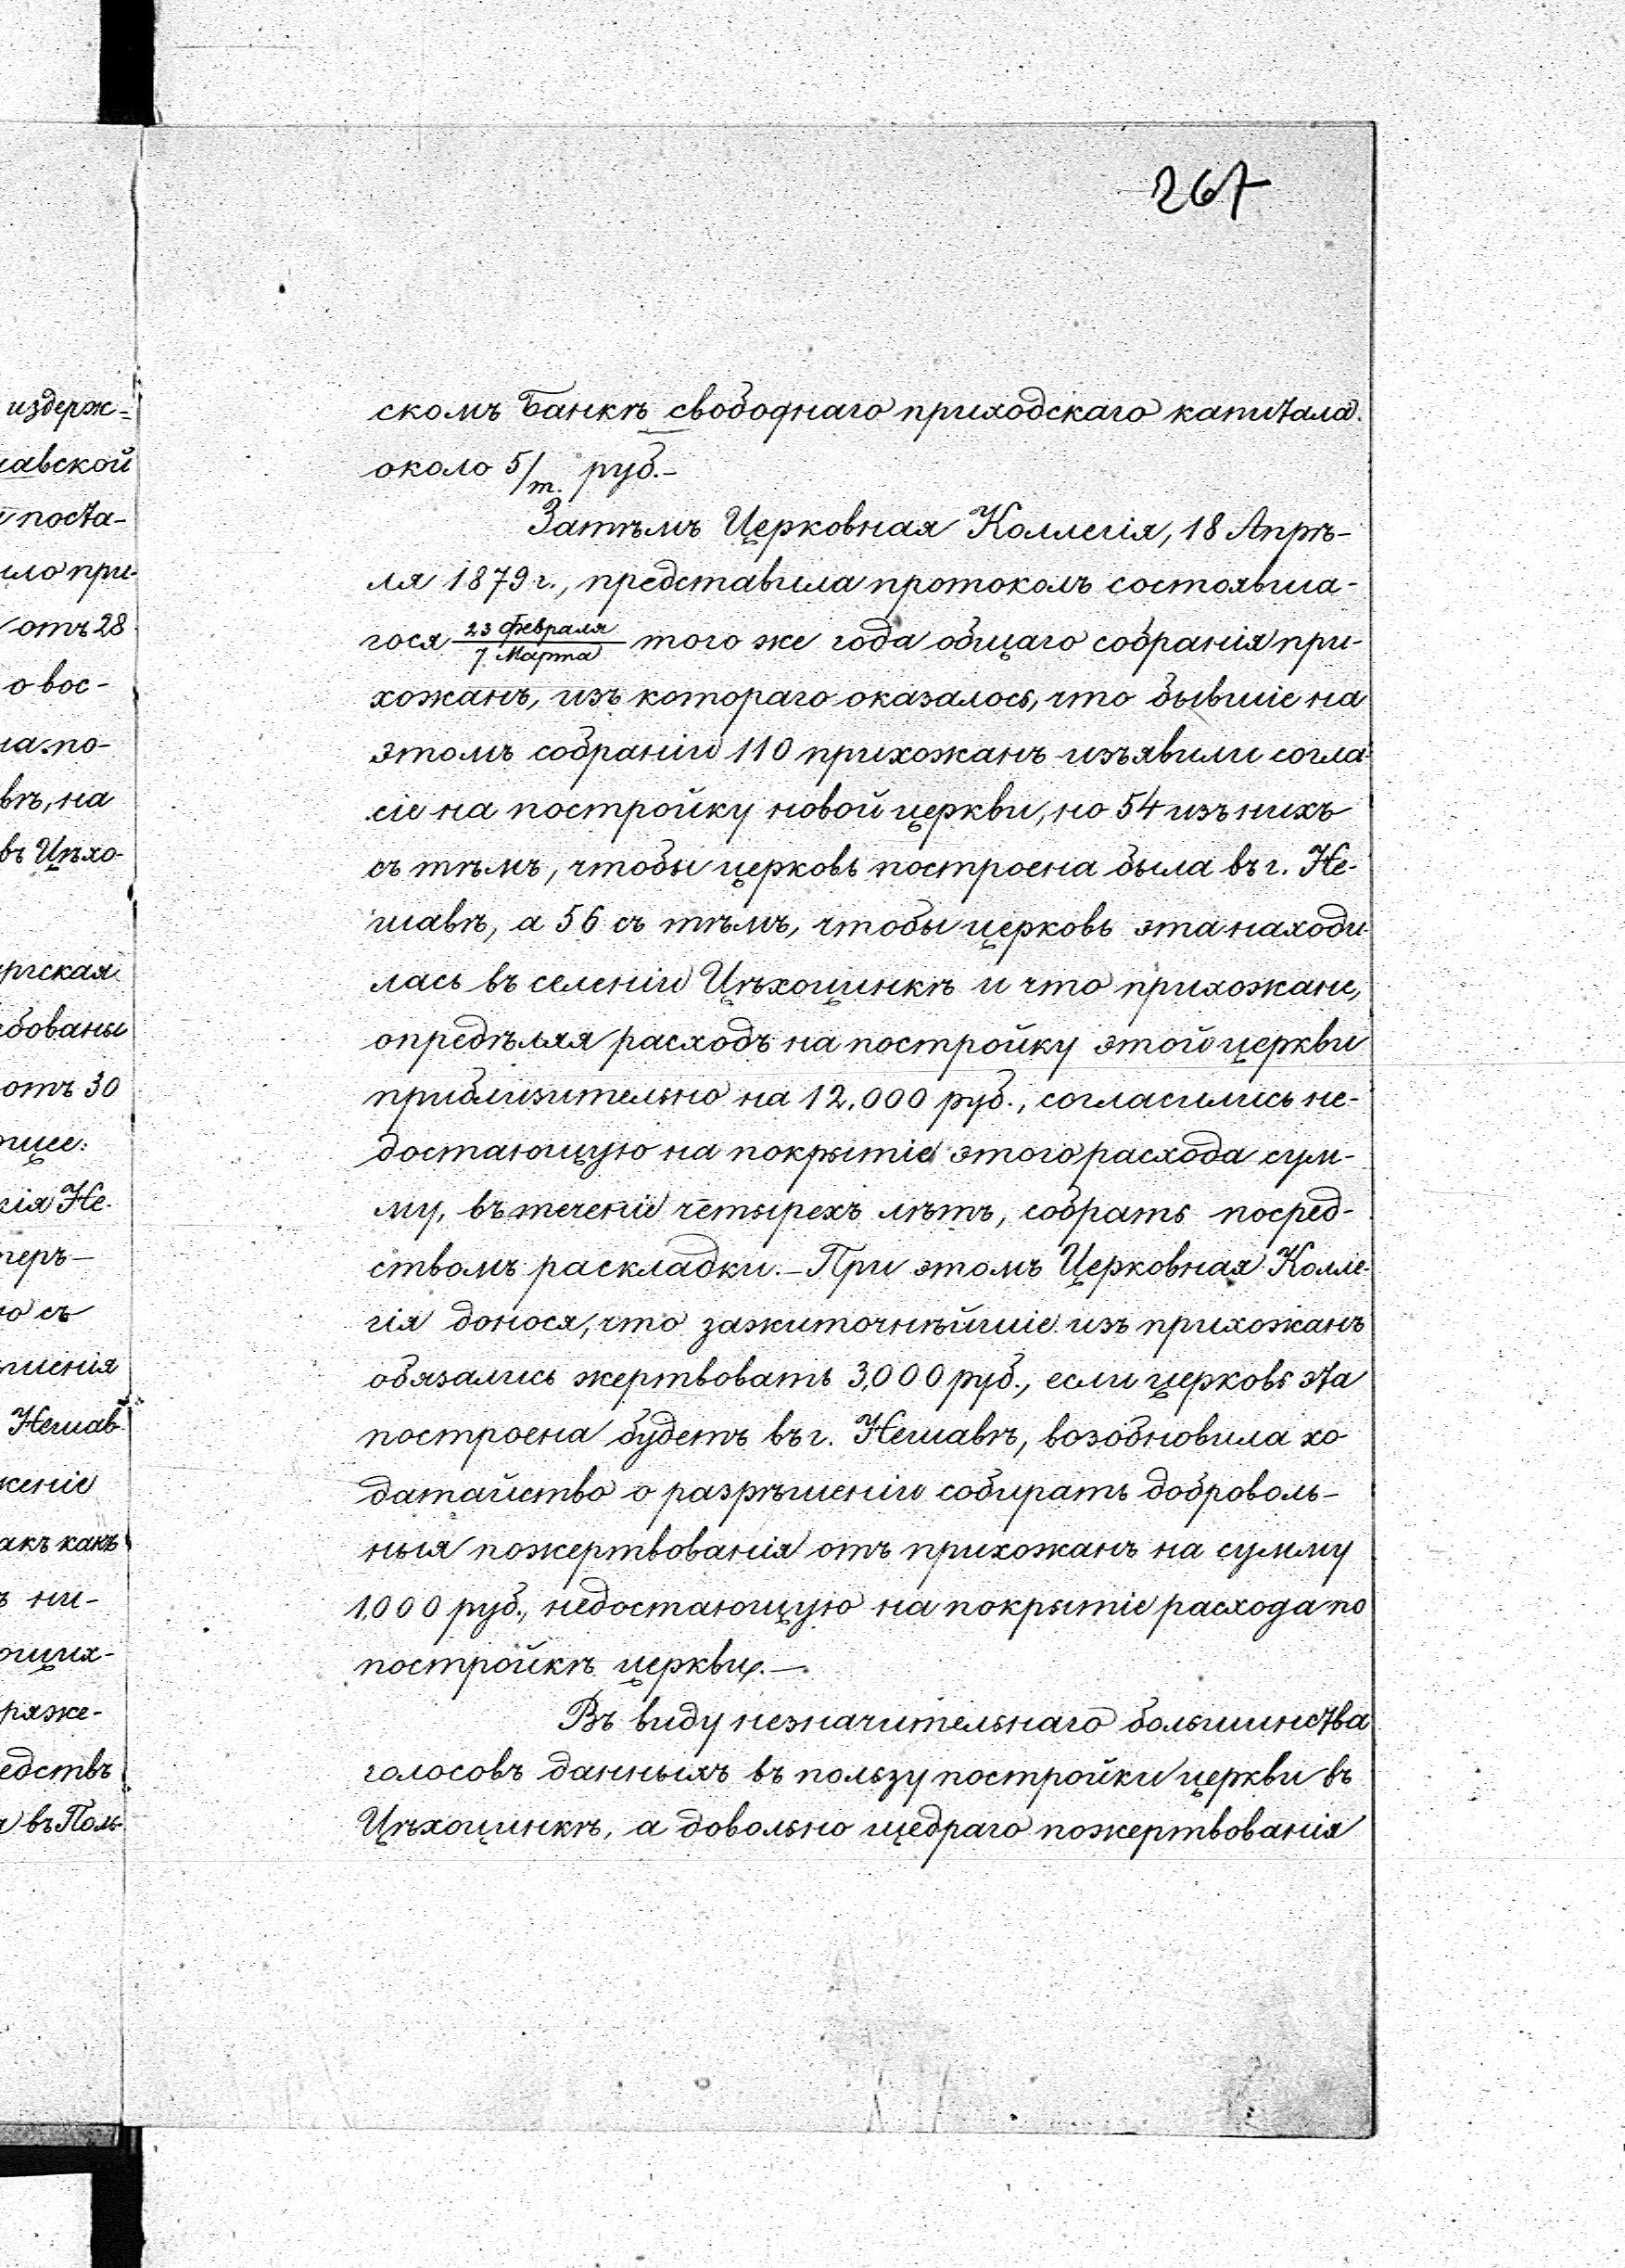 267
скомъ Банкѣ свободнаго приходскаго капитала
около 5/т. руб.-
Затѣмъ Церковная Коллегія, 18 Апрѣ-
ля 1879 г., представила протоколъ состоявша-
гося 23 Февраля/7 Марта того же года общаго собранія при-
хожанъ, изъ котораго оказалось, что бывшіе на
этомъ собраніи 110 прихожанъ изъявили согла-
сіе на постройку новой церкви, но 54 изъ нихъ
съ тѣмъ, чтобы церковь построена была въ г. Не-
шавѣ, а 56 съ тѣмъ, чтобы церковь эта находи-
лась въ селеніи Цѣхоцинкѣ и что прихожане,
опредѣляя расходъ на постройку этой церкви
приблизительно на 12,000 руб., согласились не-
достающую на покрытіе этого расхода сум-
му, въ теченіе четырехъ лѣтъ, собрать посред-
ствомъ раскладки.- При этомъ Церковная Колле-
гія донося, что зажиточнѣйшіе изъ прихожанъ
обязались жертвовать 3,000 руб., если церковь эта
построена будетъ въ г. Нешавѣ, возобновила хо
датайство о разрѣшеніи собирать доброволь-
ныя пожертвованія отъ прихожанъ на сумму
1,000 руб., недостающую на покрытіе расхода по
постройкѣ церкви.-
Въ виду незначительнаго большинства
голосовъ данныхъ въ пользу постройки церкви въ
Цѣхоцинкѣ, а довольно щедраго пожертвованія
издерж-
авской
поста-
ло при-
отъ 28
о вос-
на по-
вѣ, на
въ Цѣхо-
ргская
ебованы
отъ 30
щее:
гія Не-
перъ-
ю съ
шенія
Нешав
женіе
акъ какъ
ни-
ющих-
ряже-
едствъ
въ Поль-